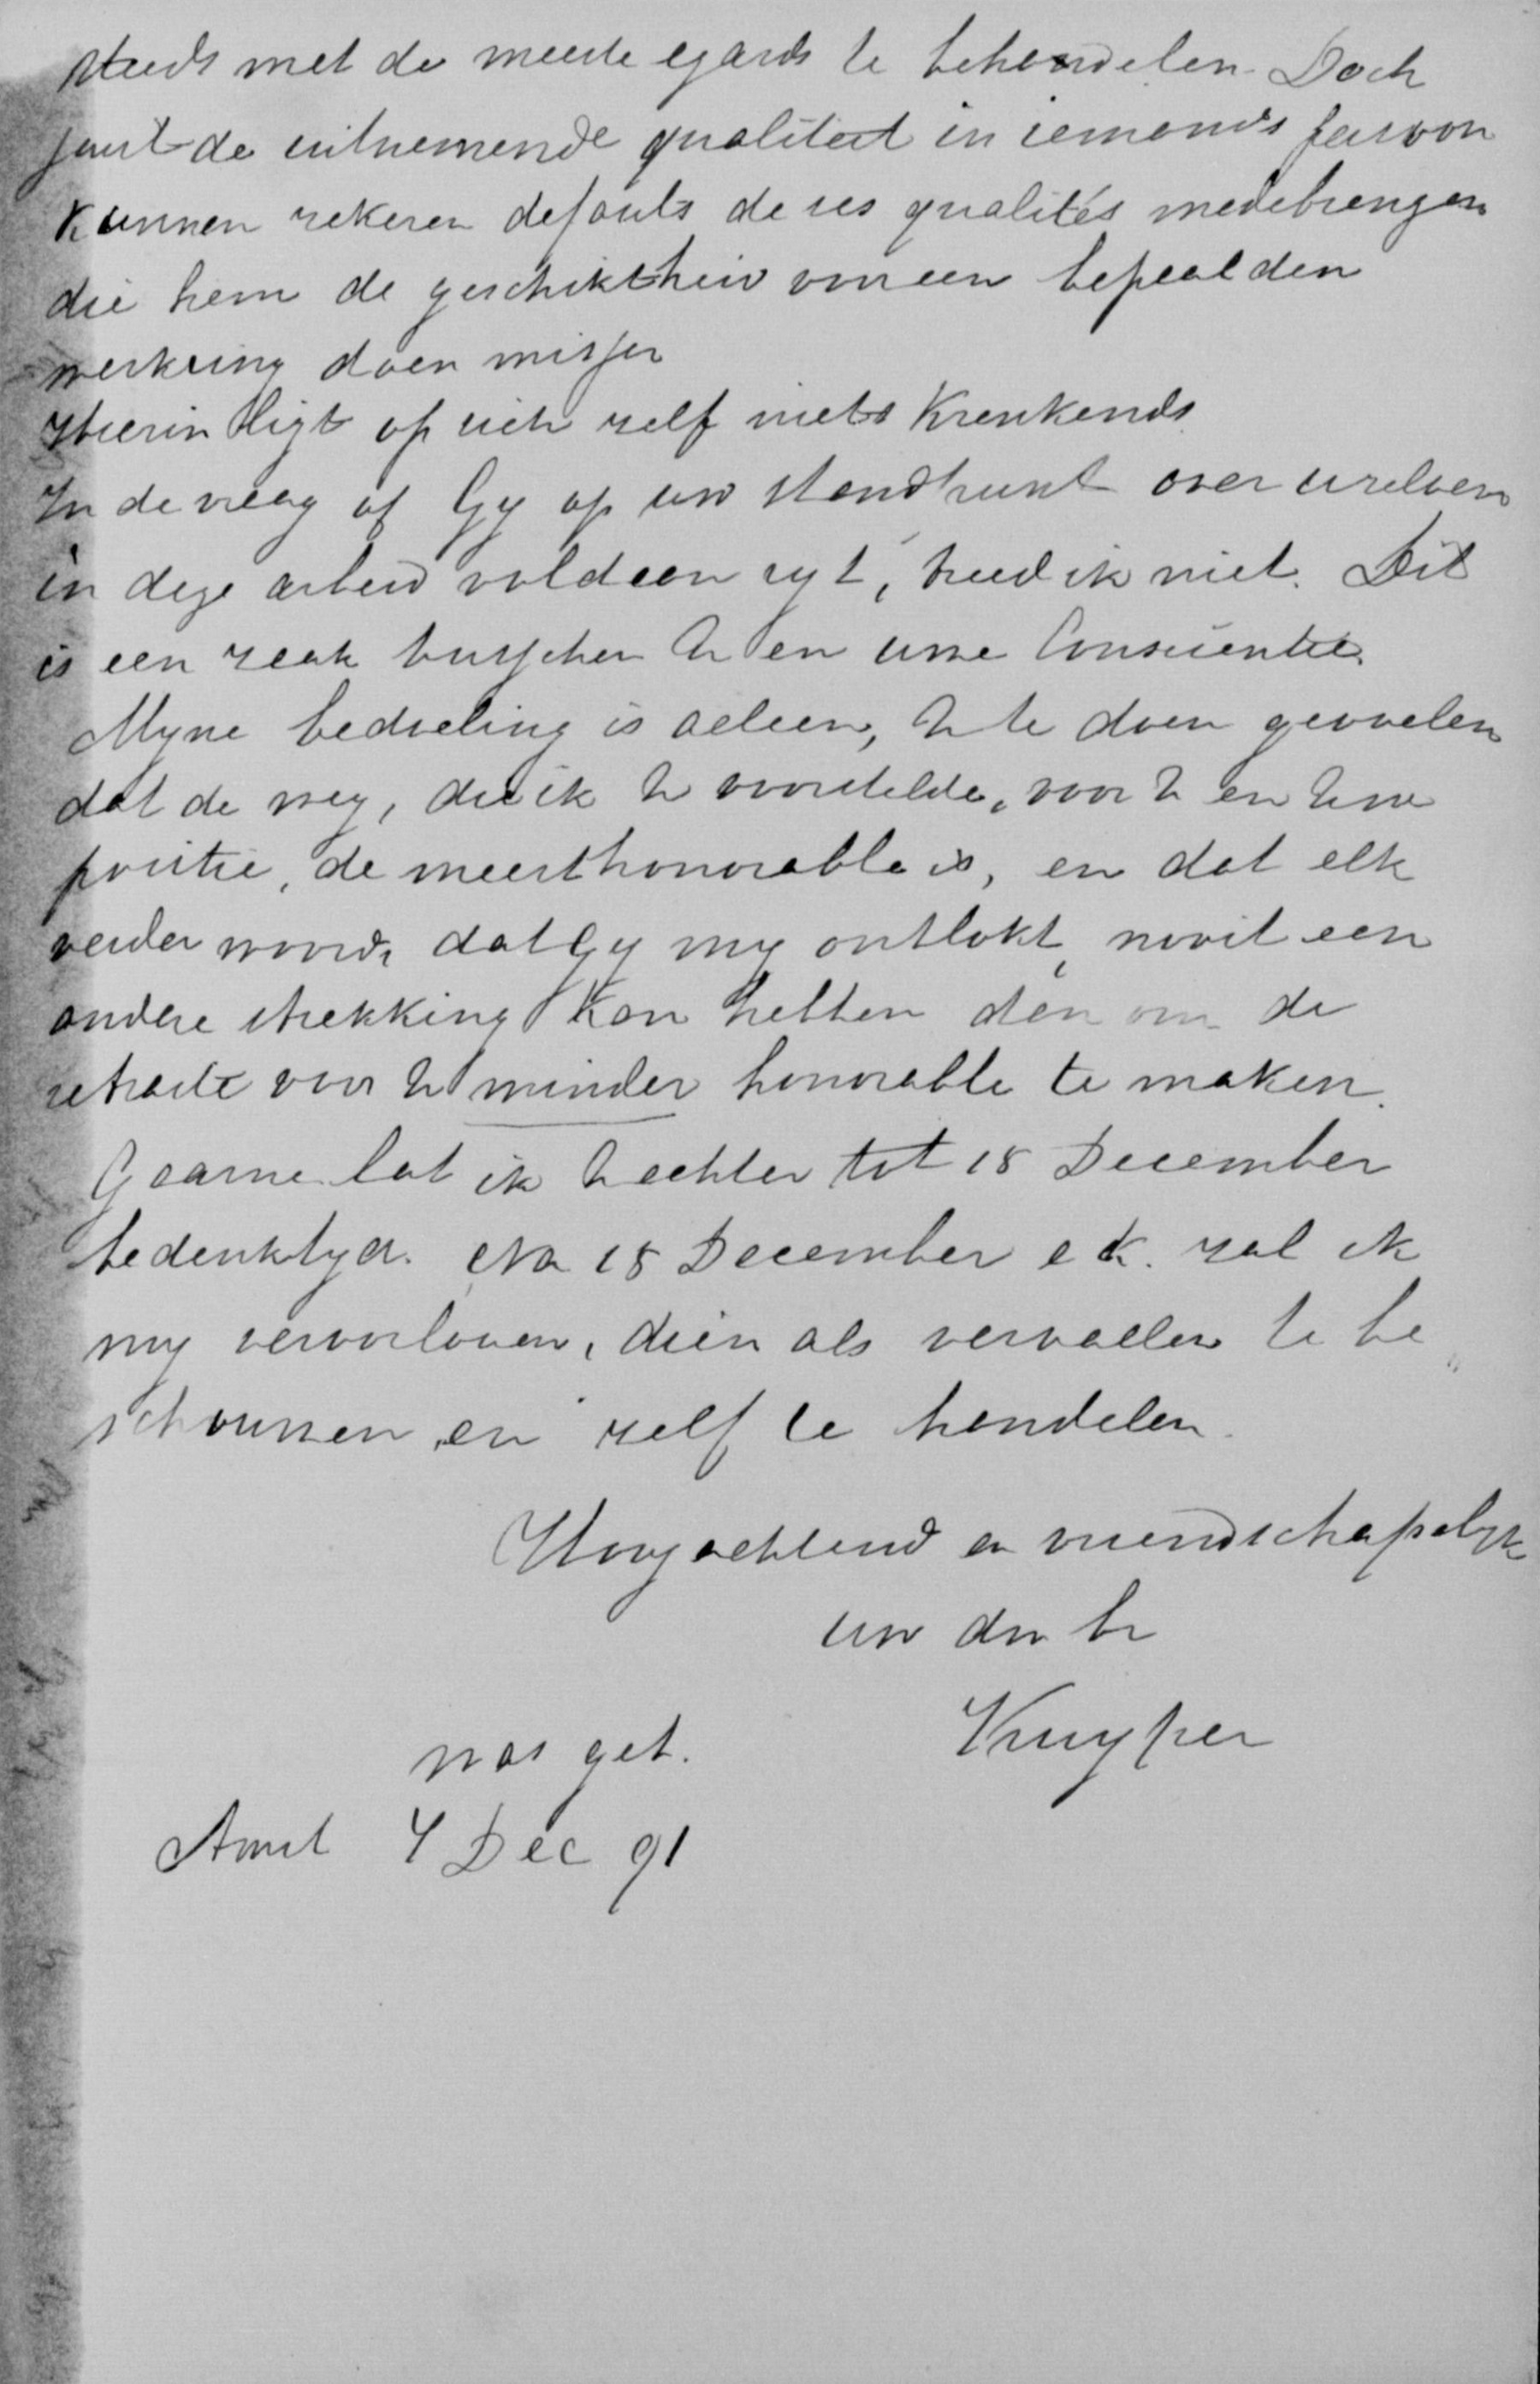 steeds met de meeste egards te behandelen. Doch
juist de uitnemende qualiteit in iemands persoon
kunnen zekeren defauts de ses qualités medebrengen
die hem de geschiktheid voor een bepaalden
werkkring doen missen
Hierin ligt op zich zelf niets krenkends.
In de vraag of Gy op uw standpunt over uzelven
in deze arbeid voldaan zyt, treed ik niet. Dit
is een zaak tusschen U en uwe Conscientie.
Myne bedoeling is alleen, U te doen gevoelen
dat de weg, die ik U voorstelde, voor U en Uwe
positie, de meest honorable is, en dat elk
verder woord, dat Gy my ontlokt, nooit een
andere strekking kan hebben dan om de
retraite voor U minder honorable te maken.
Gaarne laat ik U echter tot 18 December
bedenktyd. Na 18 December e k. zal ik
my veroorloven, dien als vervallen te be„
schouwen en zelf te handelen.
Hoogachtend en vriendschapelyk
uw dw br
Kuyper
was get.
Amst 4 Dec 91